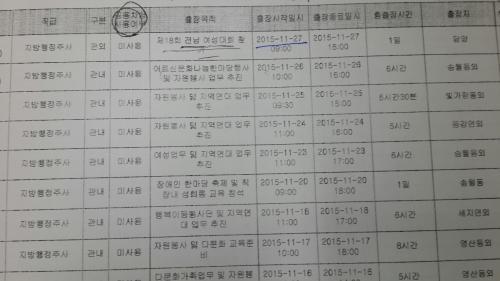 직급 구분 출장목적 출장시작일시 출장종료일시 총출장시간 출장지
지방행정주사 관외 미사용 제18회 전남 여성대회 참 2015-11-27 09:00 2015-11-27 18:00 1일 담양
지방행정주사 관내 미사용 2015-11-26 10:00 2015-11-26 16:00 6시간 송월동외
및 자원봉사 업무 추진
지방행정주사 관내 미사용 자원봉사 및 지역연대 업무 추진 2015-11-25 09:30 2015-11-25 15:00 5시간30분 빛가람동외
지방행정주사 관내 미사용 자원봉사 및 지역연대 업무 추진 2015-11-24 11:00 2015-11-24 16:00 5시간
지방행정주사 관내 미사용 여성업무 및 지역연대 업무 추진 2015-11-23 11:00 2015-11-23 17:00 송월동외
지방행정주사 관내 미사용 장애인 한마당 축제 및 직장내 성희롱 교육 참석 2015-11-20 09:00 2015-11-20 18:00 1일 송월동
지방행정주사 관내 미사용 행복이음봉사단 및 지역연대 업무 추진 2015-11-18 11:00 2015-11-18 17:00 6시간 세지면외
지방행정주사 관내 미사용 자원봉사 및 다문화 교육준비 2015-11-17 10:00 2015-11-17 18:00 영산동외
지방행정주사 관내 미사용 다문화가족업무 및 자원봉 2015-11-16 2015-11-16 5시간 영산동외